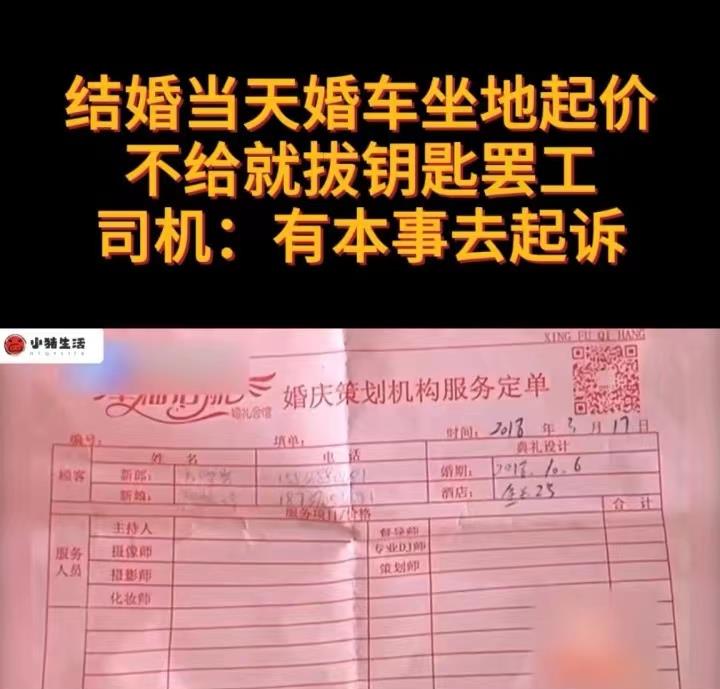 结婚当天婚车坐地起价
不给就拔钥匙罢工
司机：有本事去起诉
小猪生活
XING FU QI HANG
婚礼会馆
婚庆策划机构服务定单
时间：2018年3月17日
编号： 填单：
姓名 电话 典礼设计
顾客 新郎： 婚期：2018.10.6
新娘： 酒店：
服务项目/价格 合计
服务人员 主持人 督导师
摄像师 专业DJ师
摄影师 策划师
化妆师